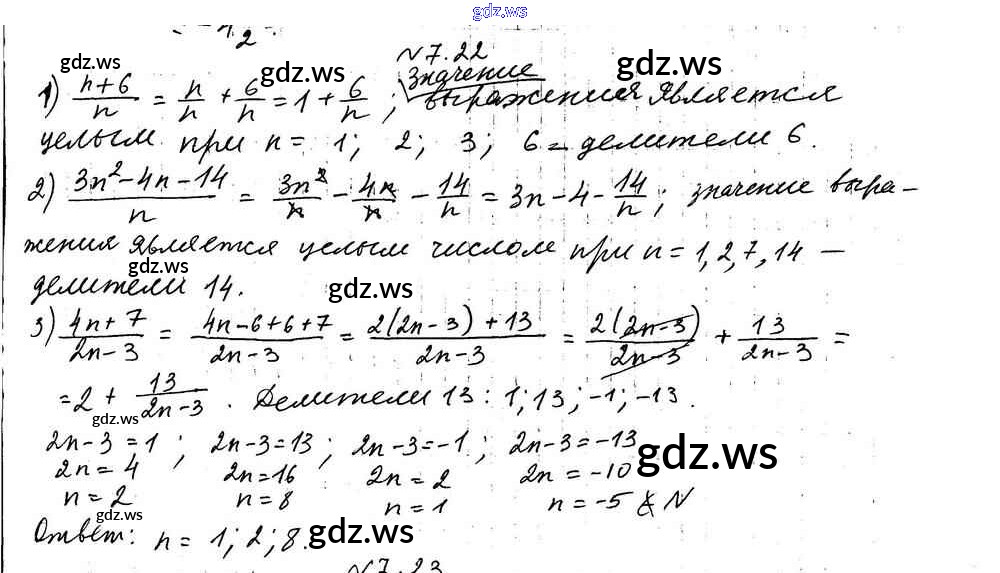 gdz.ws
№7.22
1) (n+6)/n = n/n + 6/n = 1 + 6/n ; Значение выражения является
целым при n = 1; 2; 3; 6 – делители 6.
2) (3n²-4n-14)/n = 3n²/n - 4n/n - 14/n = 3n-4-14/n ; значение выра-
жения является целым числом при n = 1, 2, 7, 14 –
делители 14.
3) (4n+7)/(2n-3) = (4n-6+6+7)/(2n-3) = (2(2n-3)+13)/(2n-3) = 2(2n-3)/(2n-3) + 13/(2n-3) =
= 2 + 13/(2n-3) . Делители 13: 1; 13; -1; -13.
2n-3=1 ; 2n-3=13 ; 2n-3=-1 ; 2n-3=-13
2n=4 2n=16 2n=2 2n=-10
n=2 n=8 n=1 n=-5 ∉ N
Ответ: n = 1; 2; 8.
№7.23
gdz.ws
gdz.ws
gdz.ws
gdz.ws
gdz.ws
gdz.ws
gdz.ws
gdz.ws
gdz.ws